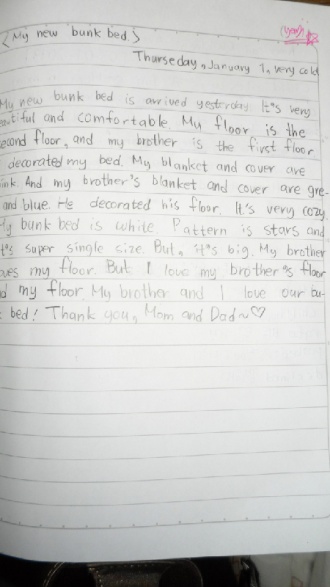 <My new bunk bed>
Thurseday, January 1, very cold
My new bunk bed is arrived yesterday. It's very
eautiful and comfortable. My floor is the
econd floor, and my brother is the first floor.
decorated my bed. My blanket and cover are
ink. And my brother's blanket and cover are gre-
and blue. He decorated his floor. It's very cozy
My bunk bed is white. Pattern is stars and
t's super single size. But, it's big. My brother
oves my floor. But I love my brother's floor
d my floor. My brother and I love our bu-
bed! Thank you, Mom and Dad~♡